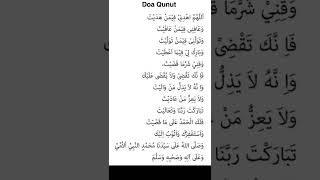 Doa Qunut
اَللّٰهُمَّ اهْدِنِيْ فِيْمَنْ هَدَيْتَ
وَعَافِنِيْ فِيْمَنْ عَافَيْتَ
وَتَوَلَّنِيْ فِيْمَنْ تَوَلَّيْتَ
وَبَارِكْ لِيْ فِيْمَا اَعْطَيْتَ
وَقِنِيْ شَرَّمَا قَضَيْتَ،
فَاِ نَّكَ تَقْضِيْ وَلَا يُقْضٰى عَلَيْكَ
وَاِ نَّهُ لَا يَذِلُّ مَنْ وَالَيْتَ
وَلَا يَعِزُّ مَنْ عَادَيْتَ
تَبَارَكْتَ رَبَّنَا وَتَعَالَيْتَ
فَلَكَ الْحَمْدُ عَلٰى مَا قَضَيْتَ
وَاَسْتَغْفِرُكَ وَاَتُوْبُ اِلَيْكَ
وَصَلَّى اللهُ عَلٰى سَيِّدِنَا مُحَمَّدٍ النَّبِيِّ اْلاُمِّيِّ
وَعَلٰى آلِهِ وَصَحْبِهِ وَسَلَّمَ